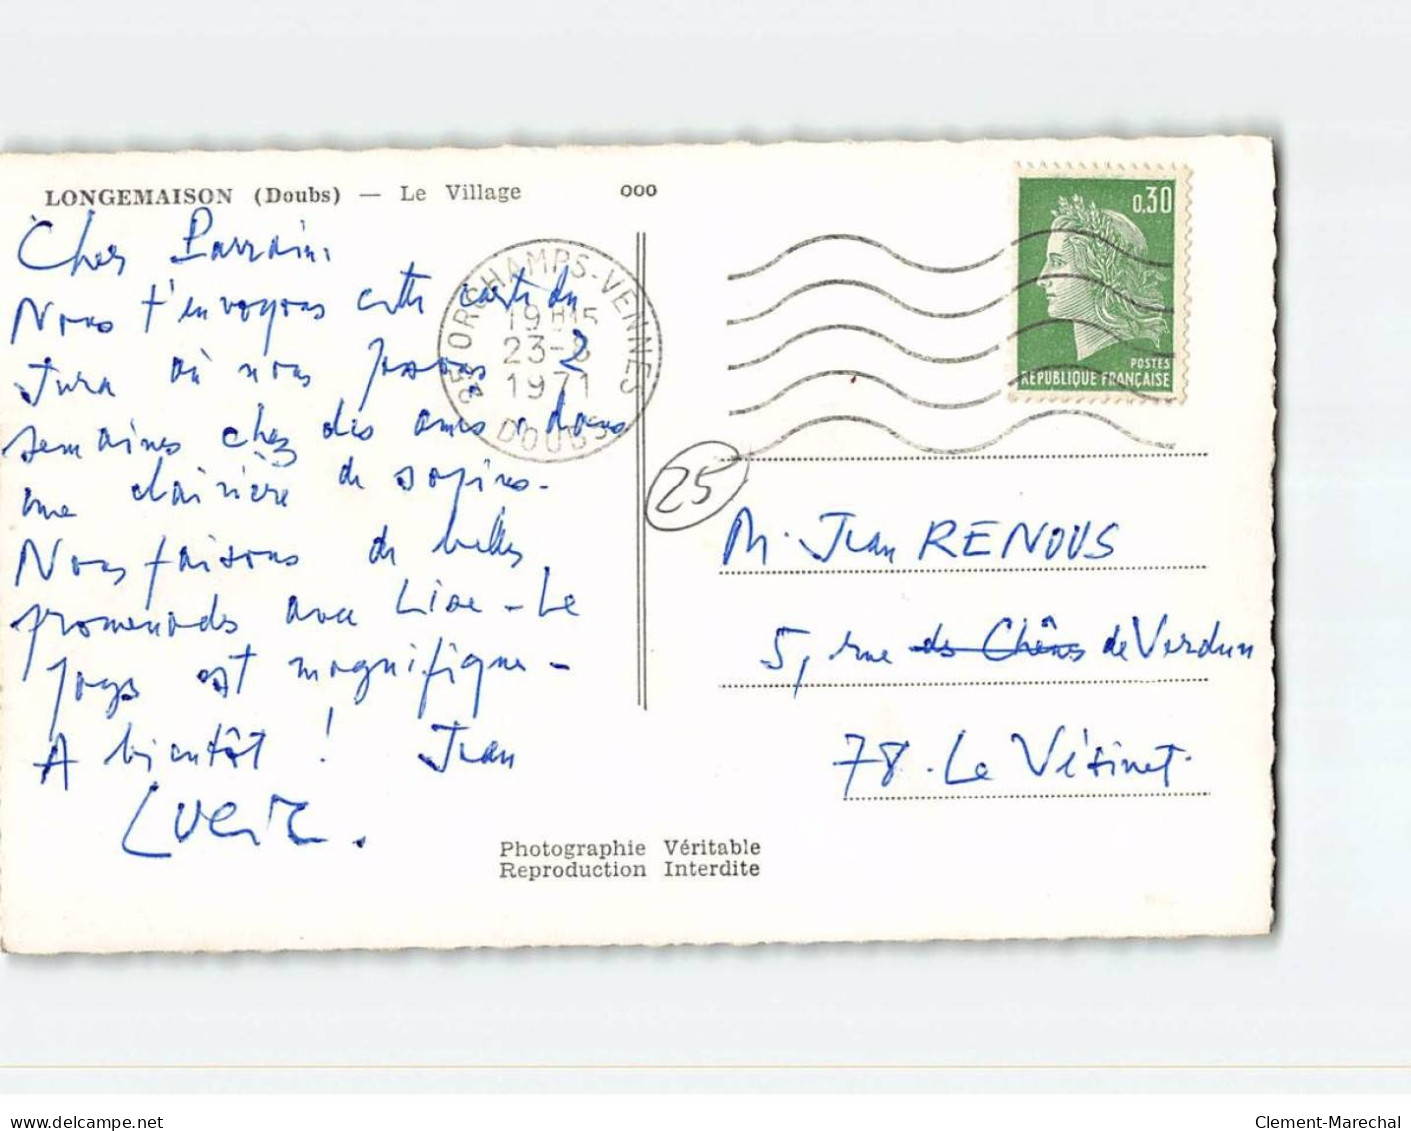 LONGEMAISON (Doubs) — Le Village ooo
Cher Parrain.
Nous t'envoyons cette carte du
Jura où nous passons 2
semaines chez des amis, dans
une clairière de sapins.
Nous faisons de belles
promenades avec Line - Le
pays est magnifique -
A bientôt ! Jean
25 ORCHAMPS-VENNES
19H15
23-8
1971
DOUBS
0,30
POSTES
RÉPUBLIQUE FRANÇAISE
25
M. Jean RENOUS
5, rue des Chênes de Verdun
78. Le Vésinet.
Photographie Véritable
Reproduction Interdite
delcampe.net
Clement-Marechal